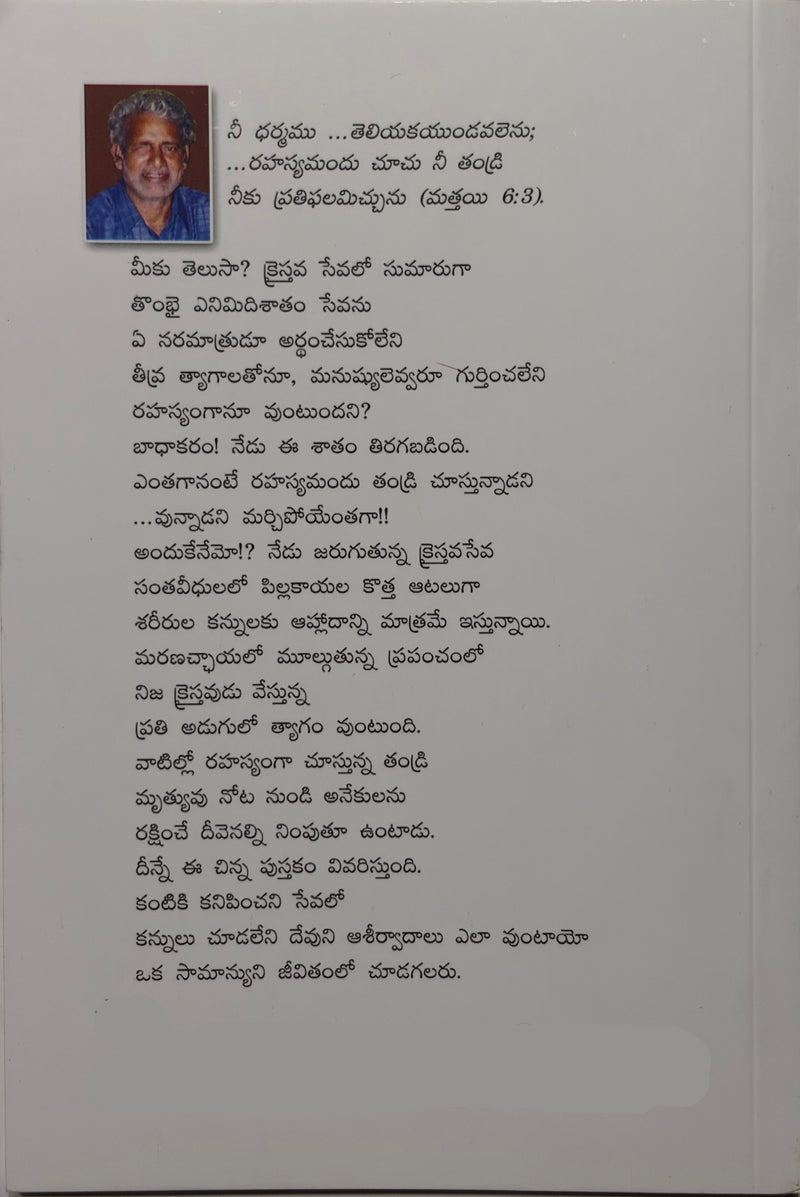 నీ ధర్మము ...తెలియకయుండవలెను;
...రహస్యమందు చూచు నీ తండ్రి
నీకు ప్రతిఫలమిచ్చును (మత్తయి 6:3).
మీకు తెలుసా? క్రైస్తవ సేవలో సుమారుగా
తొంభై ఎనిమిదిశాతం సేవను
ఏ నరమాత్రుడూ అర్థంచేసుకోలేని
తీవ్ర త్యాగాలతోనూ, మనుష్యులెవ్వరూ గుర్తించలేని
రహస్యంగానూ వుంటుందని?
బాధాకరం! నేడు ఈ శాతం తిరగబడింది.
ఎంతగానంటే రహస్యమందు తండ్రి చూస్తున్నాడని
...వున్నాడని మర్చిపోయేంతగా!!
అందుకేనేమో!? నేడు జరుగుతున్న క్రైస్తవసేవ
సంతవీధులలో పిల్లకాయల కొత్త ఆటలుగా
శరీరుల కన్నులకు ఆహ్లాదాన్ని మాత్రమే ఇస్తున్నాయి.
మరణచ్ఛాయలో మూల్గుతున్న ప్రపంచంలో
నిజ క్రైస్తవుడు వేస్తున్న
ప్రతి అడుగులో త్యాగం వుంటుంది.
వాటిల్లో రహస్యంగా చూస్తున్న తండ్రి
మృత్యువు నోట నుండి అనేకులను
రక్షించే దీవెనల్ని నింపుతూ ఉంటాడు.
దీన్నే ఈ చిన్న పుస్తకం వివరిస్తుంది.
కంటికి కనిపించని సేవలో
కన్నులు చూడలేని దేవుని ఆశీర్వాదాలు ఎలా వుంటాయో
ఒక సామాన్యుని జీవితంలో చూడగలరు.